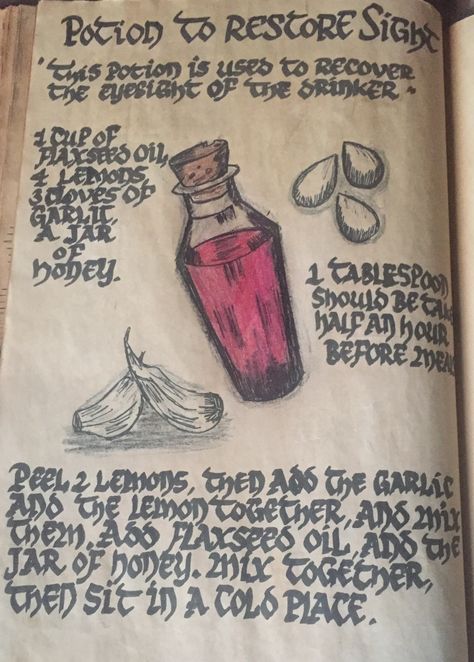 Potion to restore Sight
"This potion is used to recover
the eyesight of the drinker."
1 cup of
flaxseed oil,
4 lemons,
3 cloves of
garlic,
a jar
of
honey.
1 tablespoon
should be
half an hour
before
Peel 2 lemons, then add the garlic
and the lemon together, and mix
them. Add flaxseed oil, and the
jar of honey. Mix together,
then sit in a cold place.